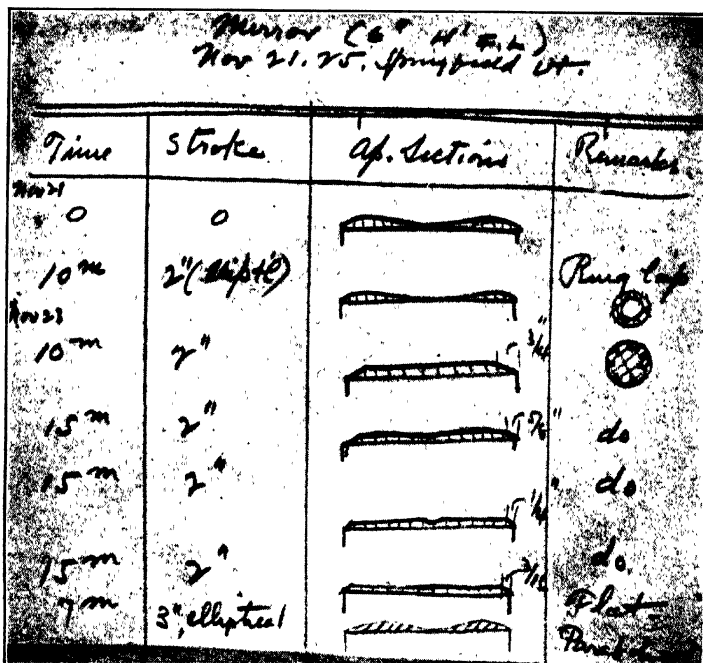 Mirror (6" 4' F.L.)
Nov 21.25. Springfield Vt.
Time Stroke Ap. Sections Remarks
Nov 21
0 0
10 m 2" (elipt'l) Ring Lap
Nov 23
10 m 2" 3/4"
15 m 2" 5/8" do
15 m 2" 1/4" do
15 m 2" 3/16 do.
7 m 3", elliptical Flat